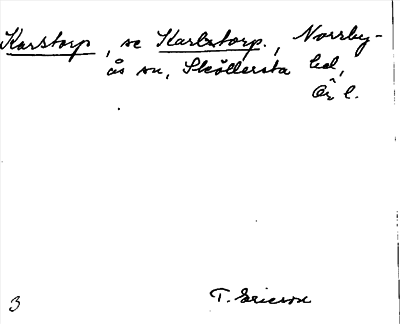 Karstorp, se Karlstorp., Norrby-
ås sn, Sköllersta hd,
Ör l.
T. Ericson
3